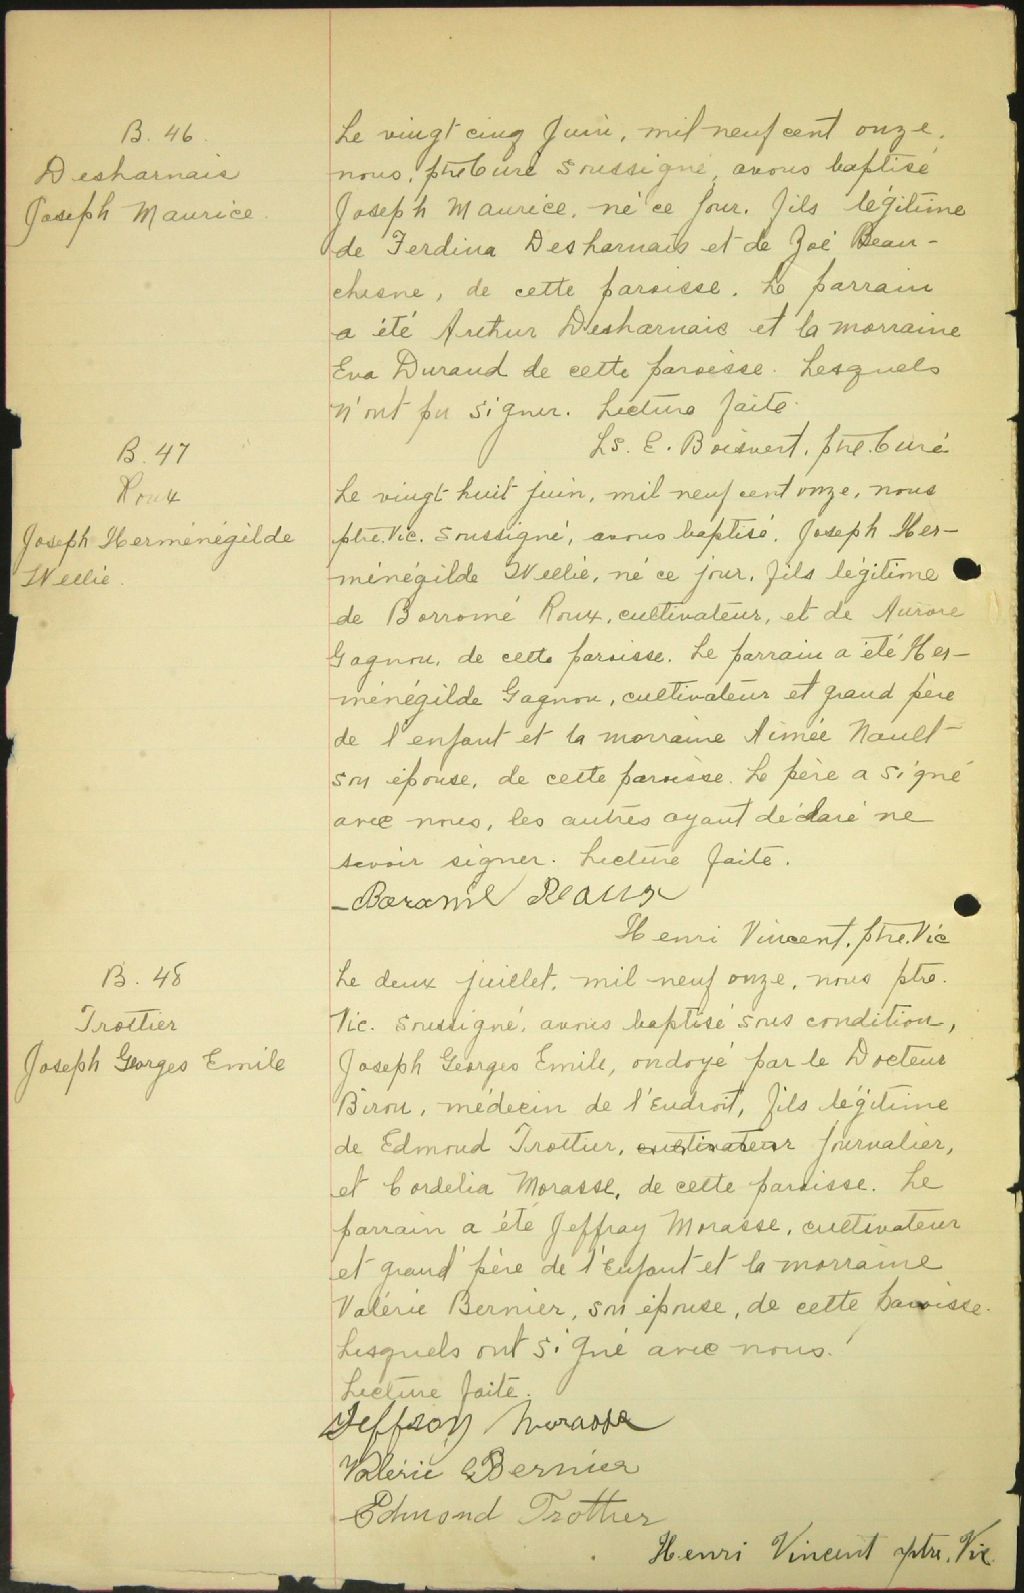 B. 46.
Desharnais
Joseph Maurice.
Le vingt cinq Juin, mil neuf cent onze,
nous, ptre Curé soussigné, avons baptisé
Joseph Maurice, né ce jour, fils légitime
de Ferdina Desharnais et de Zoé Beau-
chesne, de cette paroisse. Le parrain
a été Arthur Desharnais et la marraine
Eva Durand de cette paroisse. Lesquels
n'ont pu signer. Lecture faite.
Ls. E. Boisvert, ptre. Curé
B. 47
Roux
Joseph Herménégilde
Wellie.
Le vingt huit juin, mil neuf cent onze, nous
ptre. Vic. soussigné, avons baptisé, Joseph Her-
ménégilde Wellie, né ce jour, fils légitime
de Borromé Roux, cultivateur, et de Aurore
Gagnon, de cette paroisse. Le parrain a été Her-
ménégilde Gagnon, cultivateur et grand père
de l'enfant et la marraine Aimée Nault
son épouse, de cette paroisse. Le père a signé
avec nous, les autres ayant déclaré ne
savoir signer. Lecture faite.
Henri Vincent, ptre. Vic
B. 48
Trottier
Joseph Georges Emile
Le deux juillet, mil neuf onze, nous ptre.
Vic. soussigné, avons baptisé sous condition,
Joseph Georges Emile, ondoyé par le Docteur
Biron, médecin de l'Endroit, fils légitime
de Edmond Trottier, cultivateur journalier,
et Cordelia Morasse, de cette paroisse. Le
parrain a été Jeffray Morasse, cultivateur
et grand père de l'Enfant et la marraine
Valérie Bernier, son épouse, de cette paroisse.
Lesquels ont signé avec nous.
Lecture faite.
Jeffroy Morasse
Valérie Bernier
Edmond Trottier
Henri Vincent ptre. Vic.